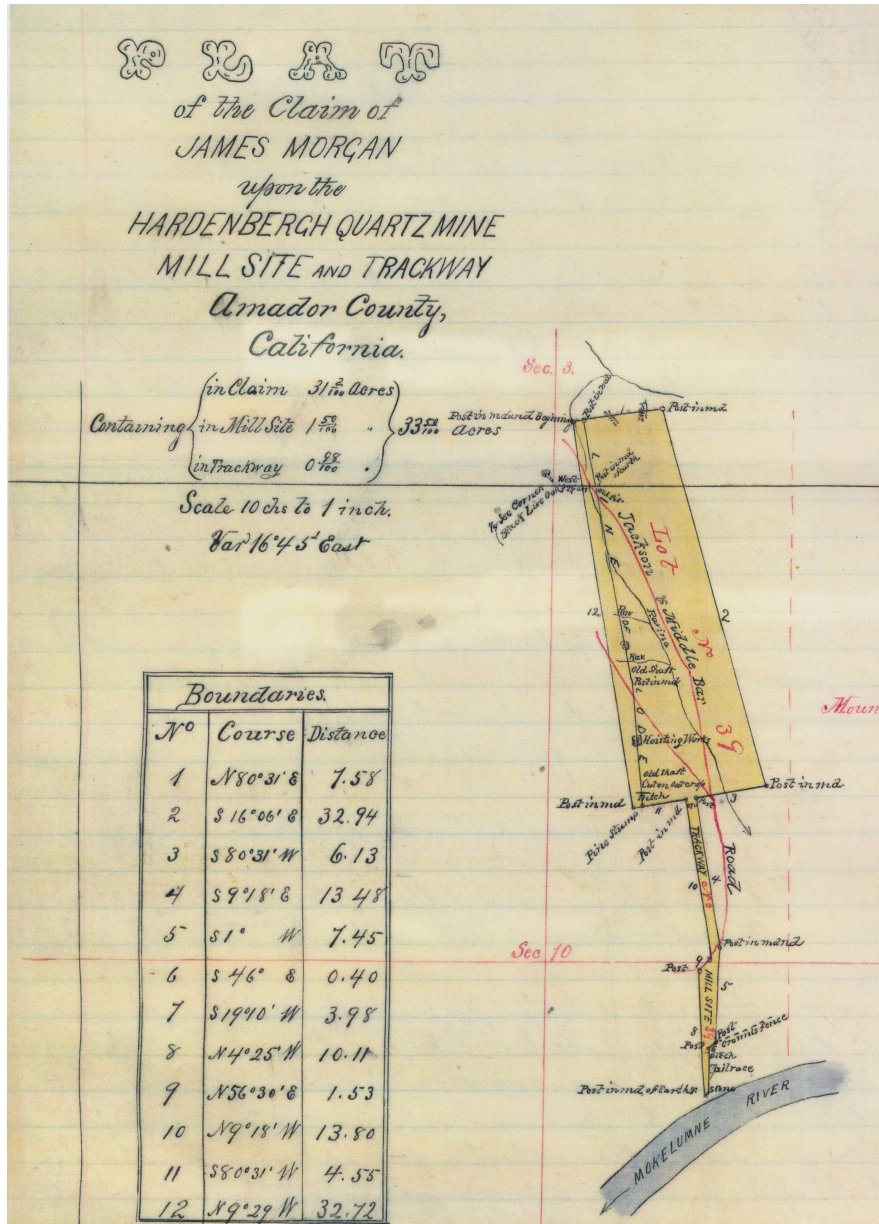 PLAT
of the Claim of
JAMES MORGAN
upon the
HARDENBERGH QUARTZ MINE
MILL SITE AND TRACKWAY
Amador County,
California.
Containing
in Claim 31 2/100 Acres
in Mill Site 1 50/100 "
in Trackway 0 98/100 "
33 50/100 Acres
Scale 10 chs to 1 inch.
Var 16°45' East
Boundaries.
No Course Distance
1 N80°31' E 7.58
2 S 16°06' E 32.94
3 S80°31' W 6.13
4 S9°18' E 13 48
5 S1° W 7.45
6 S 46° E 0.40
7 S19°10' W 3.98
8 N4°25' W 10.11
9 N56°30' E 1.53
10 N9°18' W 13.80
11 S80°31' W 4.55
12 N9°29 W 32.72
Sec. 3.
Post in mound Beginning
Post in md
Post in md
West
1/4 Sec Corner
LINE OF LODE
Jackson & Middle Bar
Road
Ravine
Lot No 39
12
2
Old Shaft
Post in md
Hoisting Works
Old Shaft
Cut on out crop
Ditch
Post in md
Post in md
3
11
Pine Stump
Post in md
TRACKWAY
4
10
Moun
Sec 10
Post in mdnd
9
Post
MILL SITE 39
5
8
Post
Post
Fence
Ditch
Tailrace
Post in md. of Earth &
stone
MOKELUMNE RIVER